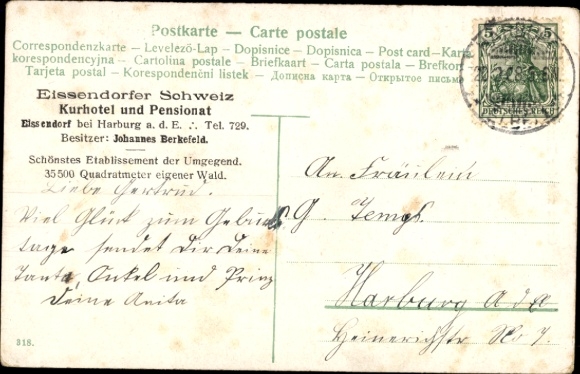 Postkarte — Carte postale
Correspondenzkarte – Levelező-Lap – Dopisnice – Dopisnica – Post card – Karta
korespondencyjna – Cartolina postale – Briefkaart – Carta postala – Brefkort
Tarjeta postal – Korespondenčni listek – Дописна карта – Открытое письмо
Eissendorfer Schweiz
Kurhotel und Pensionat
Eissendorf bei Harburg a. d. E. ∴ Tel. 729.
Besitzer: Johannes Berkefeld.
Schönstes Etablissement der Umgegend.
35500 Quadratmeter eigener Wald.
Liebe Gertrud.
Viel Glück zum Geburts
tage sendet Dir Deine
Tante, Onkel und Prinz
Deine Anita
318.
5 5
DEUTSCHES REICH
An. Fräulein
G.
Harburg a d E
Heinerichstr No 7.